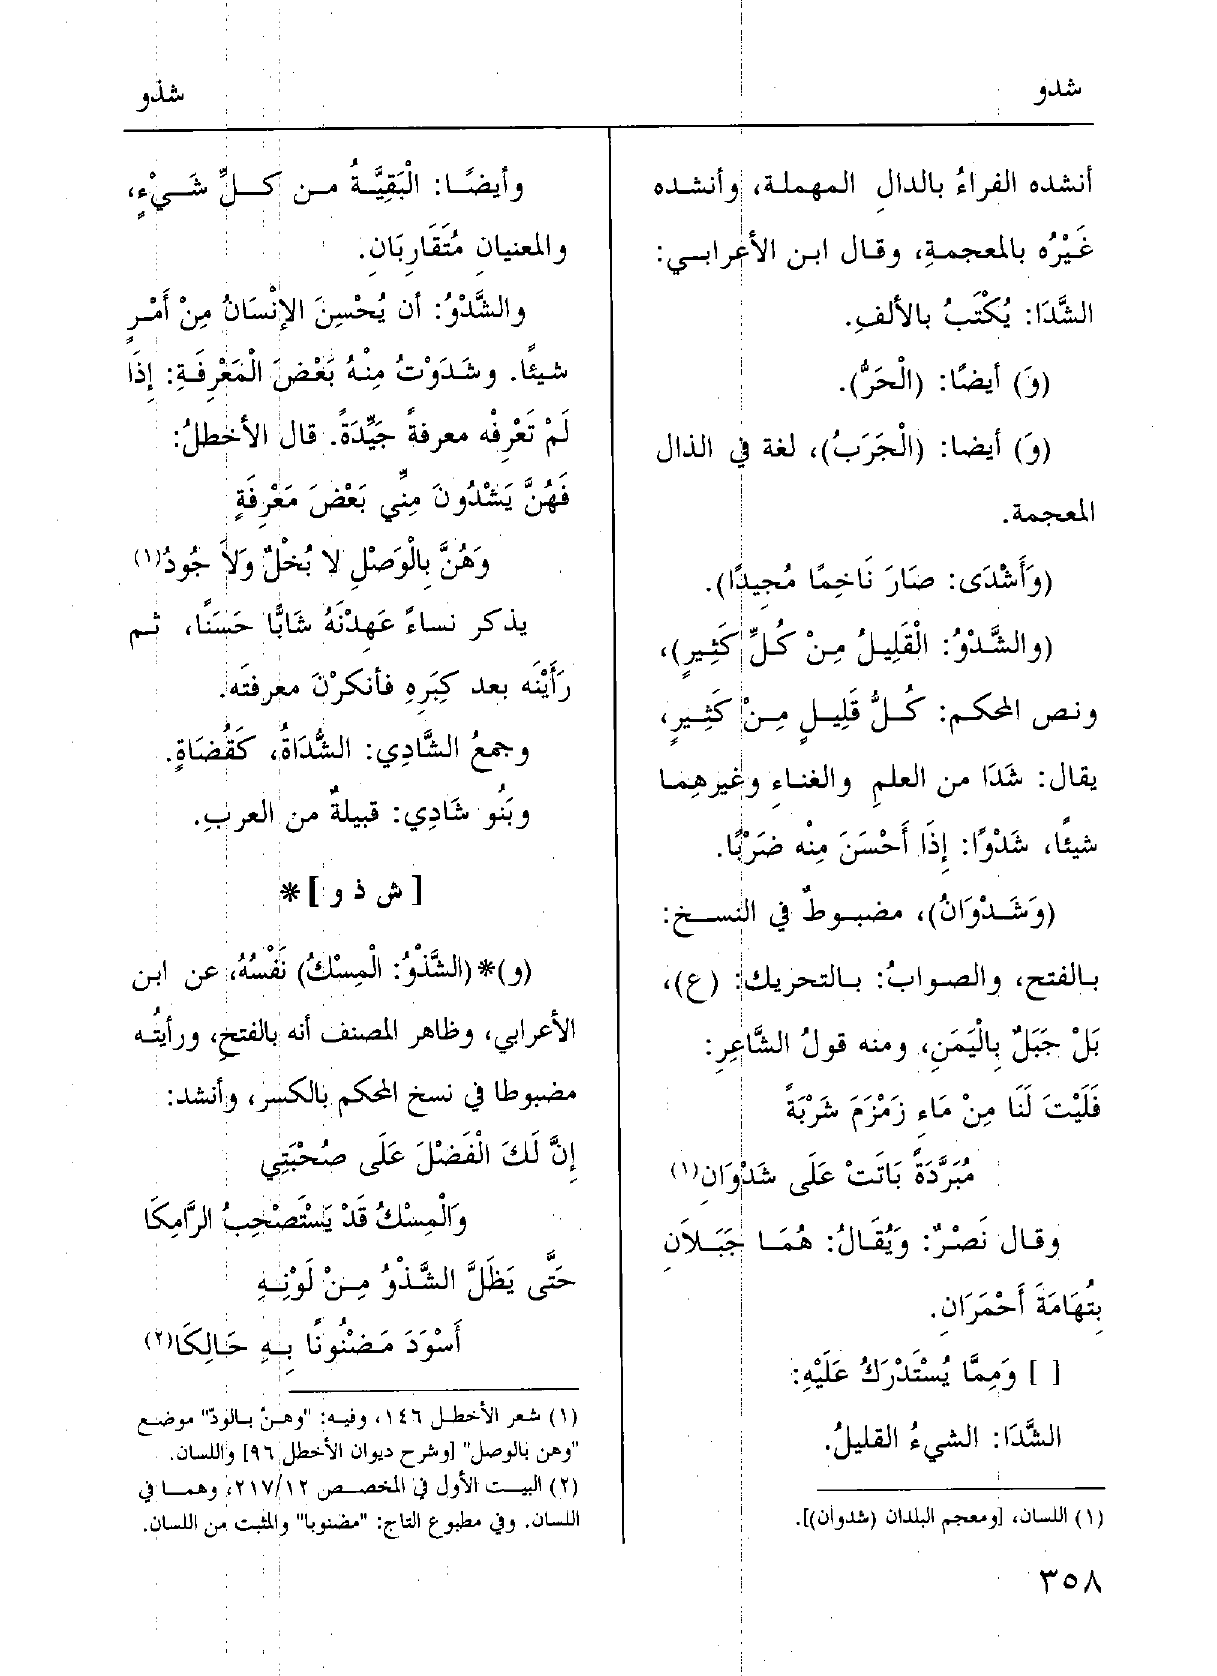 شدو
شذو
أنشده الفراءُ بالدالِ المهملة، وأنشده
غَيْرُه بالمعجمةِ، وقال ابن الأعرابي:
الشَّدَا: يُكْتَبُ بالألفِ.
(وَ) أيضًا: (الْحَرُّ).
(وَ) أيضا: (الْجَرَبُ)، لغة في الذال
المعجمة.
(وَأَشْدَى: صَارَ نَاخِمًا مُجِيدًا).
(والشَّدْوُ: الْقَلِيلُ مِنْ كُلِّ كَثِيرٍ)،
ونص المحكم: كُلُّ قَلِيلٍ مِنْ كَثِيرٍ،
يقال: شَدَا من العلمِ والغناءِ وغيرهِما
شيئًا، شَدْوًا: إِذَا أَحْسَنَ مِنْه ضَرْبًا.
(وَشَدْوَانُ)، مضبوطٌ في النسخ:
بالفتح، والصوابُ: بالتحريك: (ع)،
بَلْ جَبَلٌ بِالْيَمَنِ، ومنه قولُ الشَّاعِرِ:
فَلَيْتَ لَنَا مِنْ مَاءِ زَمْزَمَ شَرْبَةً
مُبَرَّدَةً بَاتَتْ عَلَى شَدَوَانِ(١)
وقال نَصْرٌ: وَيُقَالُ: هُمَا جَبَلاَنِ
بِتُهَامَةَ أَحْمَرَانِ.
[ ] وَمِمَّا يُسْتَدْرَكُ عَلَيْهِ:
الشَّدَا: الشيءُ القليلُ.
(١) اللسان، [ومعجم البلدان (شدوان)].
وأيضًا: الْبَقِيَّةُ من كلِّ شَيْءٍ،
والمعنيان مُتَقَارِبَان.
والشَّدْوُ: أن يُحْسِنَ الإنْسَانُ مِنْ أَمْرٍ
شيئًا. وشَدَوْتُ مِنْهُ بَعْضَ الْمَعْرِفَةِ: إِذَا
لَمْ تَعْرِفْه معرفةً جَيِّدَةً. قال الأخطلُ:
فَهُنَّ يَشْدُونَ مِنِّي بَعْضَ مَعْرِفَةٍ
وَهُنَّ بِالْوَصْلِ لا بُخْلٌ وَلاَ جُودُ(١)
يذكر نساءً عَهِدْنَهُ شَابًّا حَسَنًا، ثم
رَأَيْنَه بعد كِبَرِهِ فأنكرْنَ معرفتَه.
وجمعُ الشَّادِي: الشُّدَاةُ، كَقُضَاةٍ.
وبَنُو شَادِي: قبيلةٌ من العربِ.
[ ش ذ و ]*
(و)* (الشَّذْوُ: الْمِسْكُ) نَفْسُهُ، عن ابن
الأعرابي، وظاهر المصنف أنه بالفتحِ، ورأيتُه
مضبوطا في نسخ المحكم بالكسر، وأنشد:
إِنَّ لَكَ الْفَضْلَ عَلَى صُحْبَتِي
وَالْمِسْكُ قَدْ يَسْتَصْحِبُ الرَّامِكَا
حَتَّى يَظَلَّ الشَّذْوُ مِنْ لَوْنِهِ
أَسْوَدَ مَضْنُونًا بِهِ حَالِكَا(٢)
(١) شعر الأخطل ١٤٦، وفيه: "وهنّ بالودّ" موضع
"وهن بالوصل" [وشرح ديوان الأخطل ٩٦] واللسان.
(٢) البيت الأول في المخصص ٢١٧/١٢، وهما في
اللسان. وفي مطبوع التاج: "مضنوبا" والمثبت من اللسان.
٣٥٨